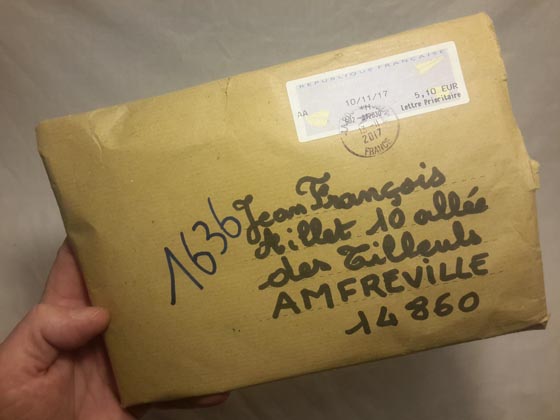 REPUBLIQUE FRANCAISE
10/11/17
5,10 EUR
AA
Lettre Prioritaire
2017
FRANCE
1636
Jean François
Aillet 10 allée
des Tilleuls
AMFREVILLE
14860